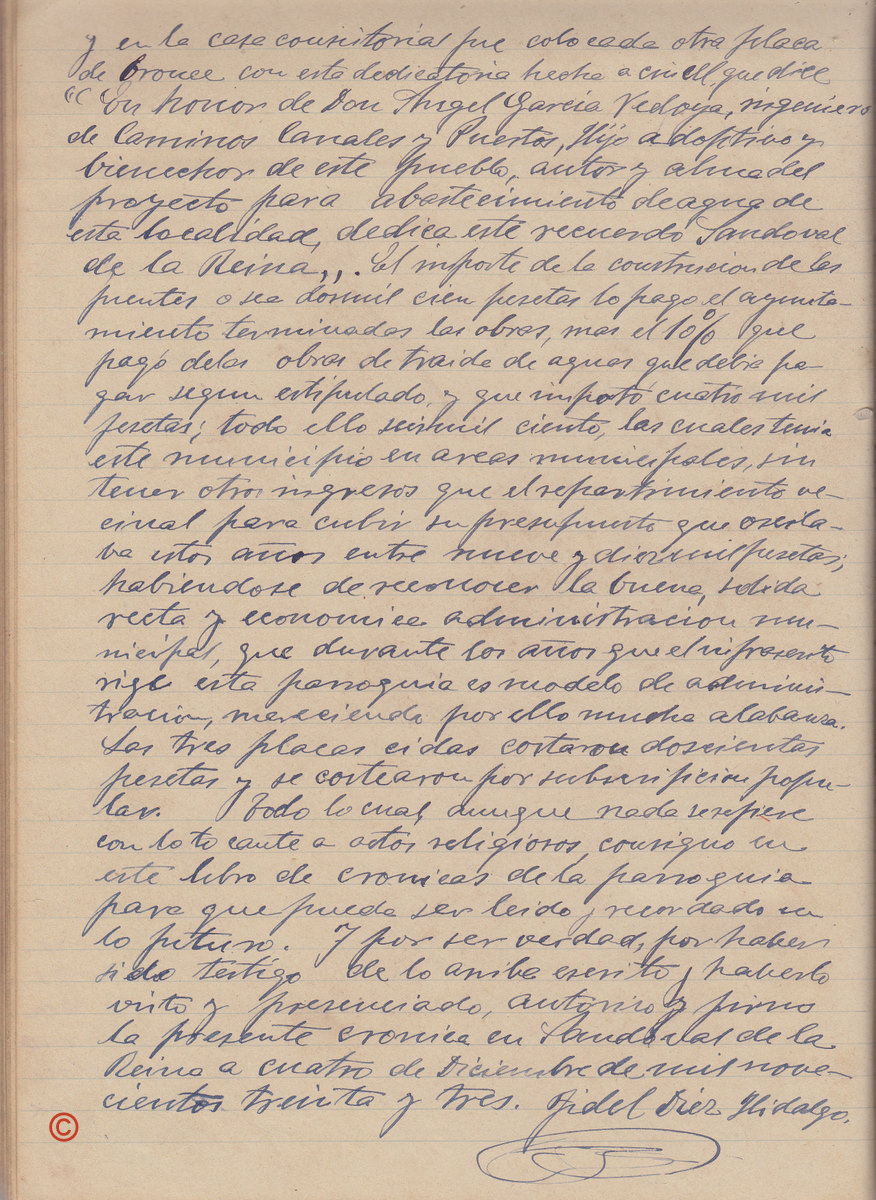 y en la casa consistorial fue colocada otra placa
de bronce con esta dedicatoria hecha a cincel, que dice
"" En honor de Don Angel Garcia Vedoya, ingeniero
de Caminos Canales y Puertos, Hijo adoptivo y
bienechor de este pueblo, autor y alma del
proyecto para abastecimiento de agua de
esta localidad, dedica este recuerdo Sandoval
de la Reina,,. El importe de la construcion de las
fuentes o sea dosmil cien pesetas lo pago el ayunta-
miento terminadas las obras, mas el 10% que
pagó delas obras de traida de aguas que debia pa-
gar segun estipulado, y que importó cuatro mil
pesetas; todo ello seismil ciento, las cuales tenia
este municipio en arcas municipales, sin
tener otros ingresos que el repartimiento ve-
cinal para cubir su presupuesto que oscila-
ba estos años entre nueve y diez mil pesetas;
habiendose de reconocer la buena, solida
recta y economica administracion mu-
nicipal, que durante los años que el infrascrito
rige esta parroquia es modelo de adminis-
tracion, mereciendo por ello mucha alabanza.
Las tres placas cidas costaron doscientas
pesetas y se costearon por subscripcion popu-
lar. Todo lo cual, aunque nada se refiere
con lo tocante a actos religiosos, consigno en
este libro de cronicas de la parroquia
para que pueda ser leido y recordado en
lo futuro. Y por ser verdad, por haber
sido testigo de lo arriba escrito y haberlo
visto y presenciado, autorizo y firmo
la presente cronica en Sandoval de la
Reina a cuatro de Diciembre de mil nove-
cientos treinta y tres. Fidel Diez Hidalgo.
©